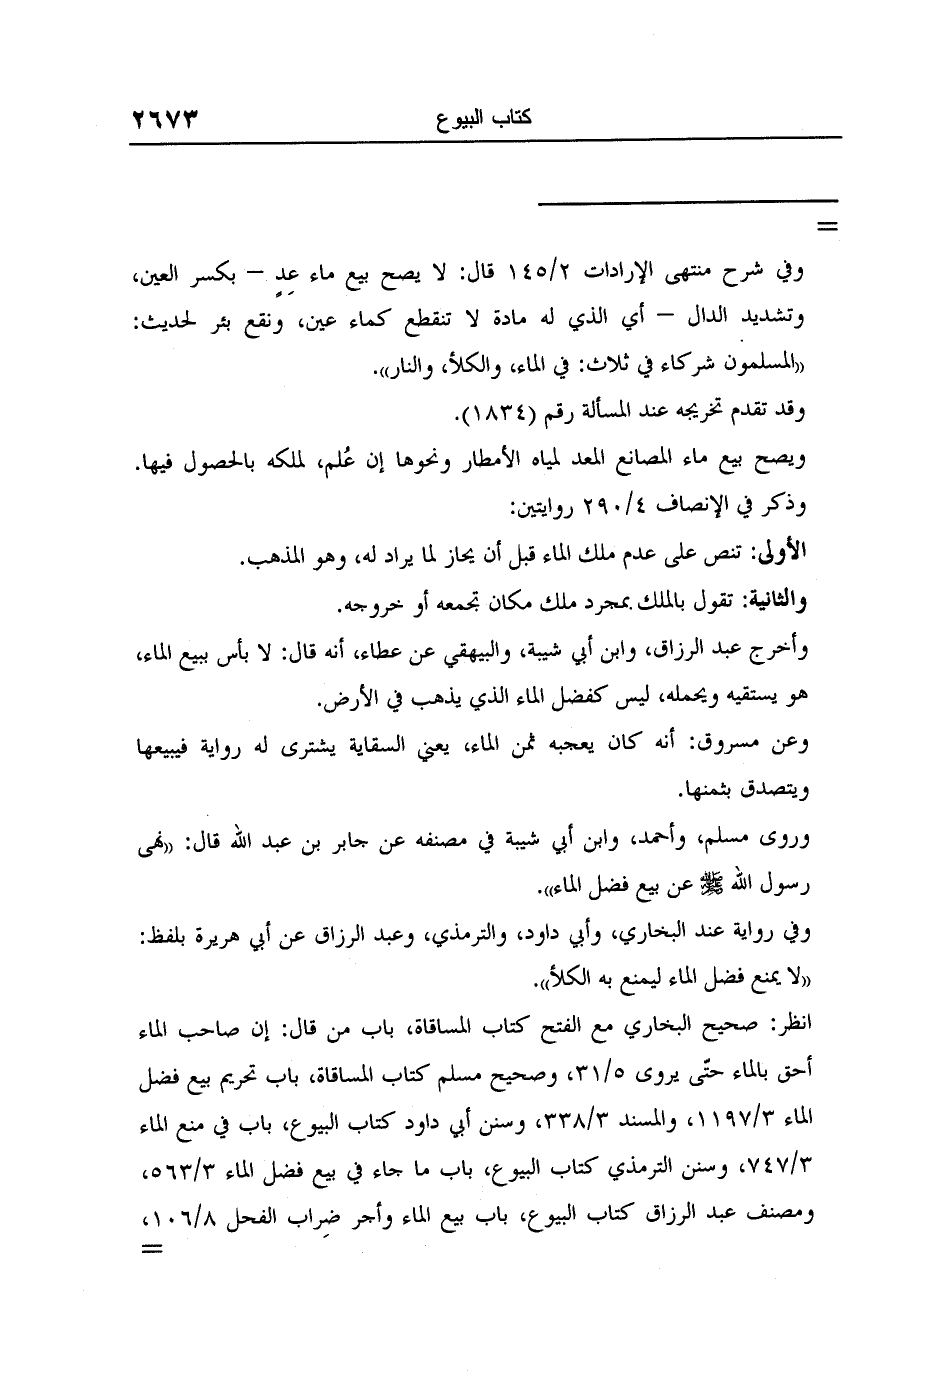 كتاب البيوع ٢٦٧٣
=
وفي شرح منتهى الإرادات ١٤٥/٢ قال: لا يصح بيع ماء عِدٍ – بكسر العين،
وتشديد الدال – أي الذي له مادة لا تنقطع كماء عين، ونقع بئر لحديث:
«المسلمون شركاء في ثلاث: في الماء، والكلأ، والنار».
وقد تقدم تخريجه عند المسألة رقم (١٨٣٤).
ويصح بيع ماء المصانع المعد لمياه الأمطار ونحوها إن عُلم، لملكه بالحصول فيها.
وذكر في الإنصاف ٢٩٠/٤ روايتين:
الأولى: تنص على عدم ملك الماء قبل أن يحاز لما يراد له، وهو المذهب.
والثانية: تقول بالملك بمجرد ملك مكان تجمعه أو خروجه.
وأخرج عبد الرزاق، وابن أبي شيبة، والبيهقي عن عطاء، أنه قال: لا بأس ببيع الماء،
هو يستقيه ويحمله، ليس كفضل الماء الذي يذهب في الأرض.
وعن مسروق: أنه كان يعجبه ثمن الماء، يعني السقاية يشترى له رواية فيبيعها
ويتصدق بثمنها.
وروى مسلم، وأحمد، وابن أبي شيبة في مصنفه عن جابر بن عبد الله قال: «نهى
رسول الله ﷺ عن بيع فضل الماء».
وفي رواية عند البخاري، وأبي داود، والترمذي، وعبد الرزاق عن أبي هريرة بلفظ:
«لا يمنع فضل الماء ليمنع به الكلأ».
انظر: صحيح البخاري مع الفتح كتاب المساقاة، باب من قال: إن صاحب الماء
أحق بالماء حتّى يروى ٣١/٥، وصحيح مسلم كتاب المساقاة، باب تحريم بيع فضل
الماء ١١٩٧/٣، والمسند ٣٣٨/٣، وسنن أبي داود كتاب البيوع، باب في منع الماء
٧٤٧/٣، وسنن الترمذي كتاب البيوع، باب ما جاء في بيع فضل الماء ٥٦٣/٣،
ومصنف عبد الرزاق كتاب البيوع، باب بيع الماء وأجر ضِراب الفحل ١٠٦/٨،
=